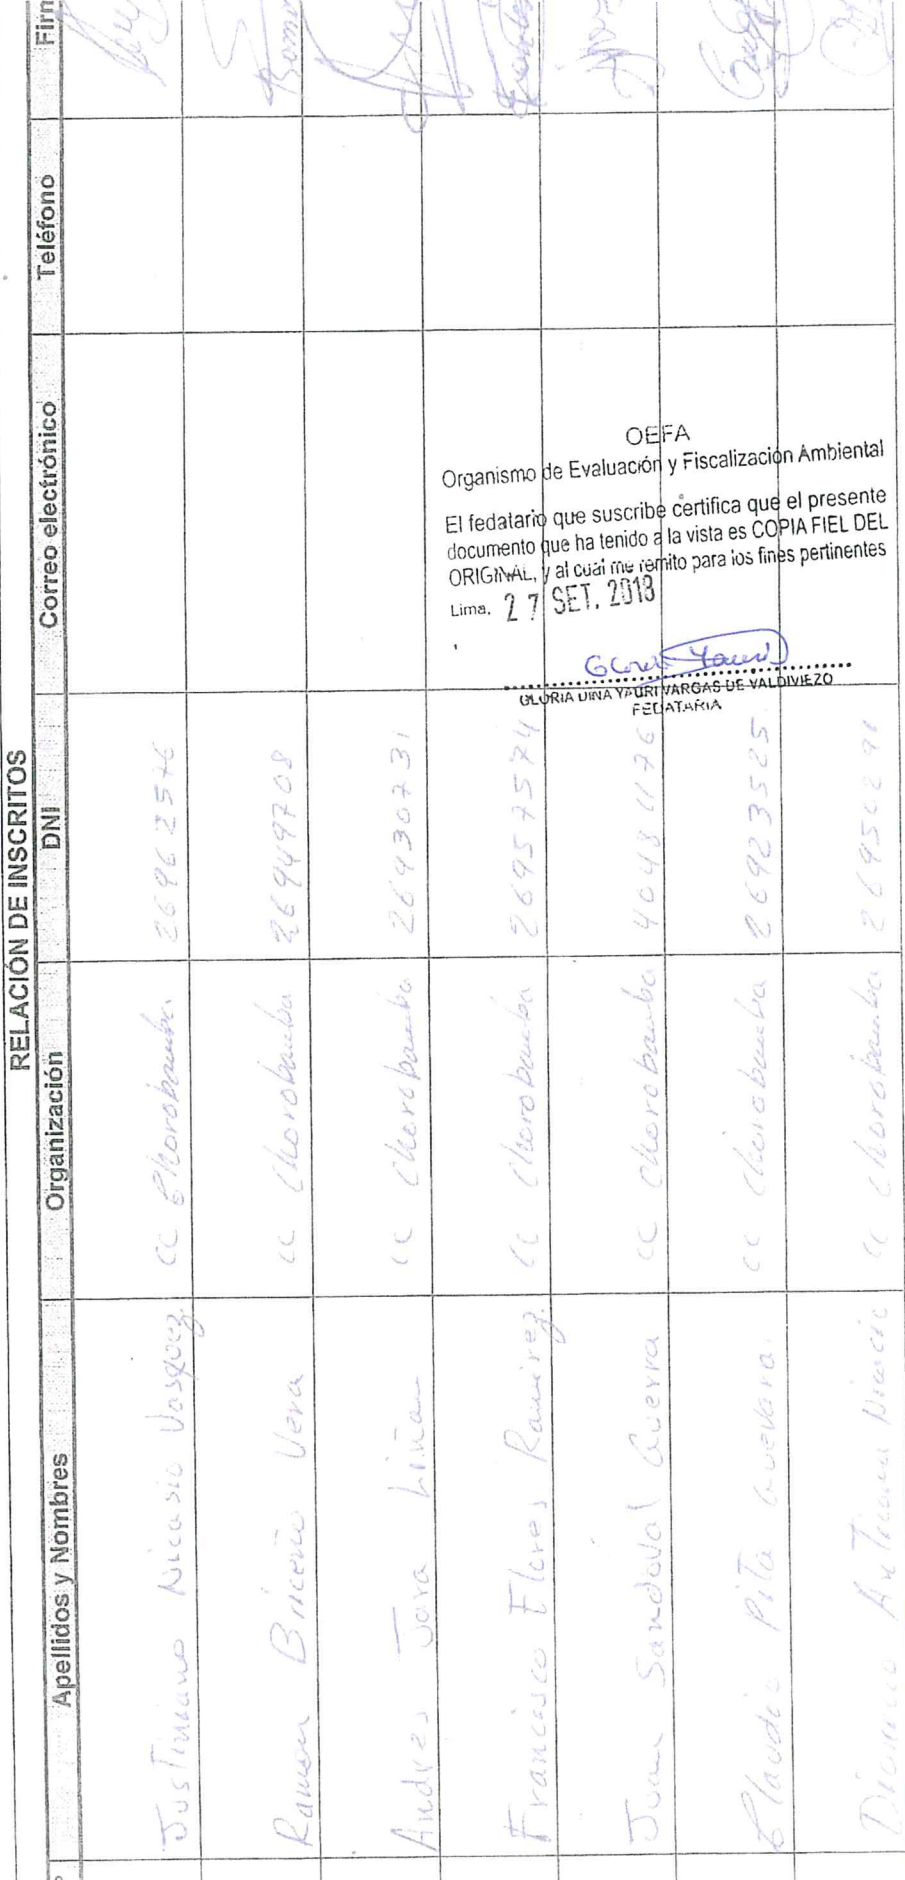 RELACIÓN DE INSCRITOS
Apellidos y Nombres Organización DNI Correo electrónico Teléfono Firm
Justiniano Nicasio Vasquez CC Chorobamba 26962576
Ramon Briceño Vera CC Chorobamba 26949708
Andres Jara Liñan CC Chorobamba 26930731
Francisco Flores Ramirez. CC Chorobamba 26957574
Juan Sandoval Guerra CC Chorobamba 40431176
Claudio Pita Guevara CC Chorobamba 26923525
CC Chorobamba
OEFA
Organismo de Evaluación y Fiscalización Ambiental
El fedatario que suscribe certifica que el presente
documento que ha tenido a la vista es COPIA FIEL DEL
ORIGINAL, y al cual me remito para los fines pertinentes
Lima, 27 SET. 2013
GLORIA DINA YAURI VARGAS DE VALDIVIEZO
FEDATARIA